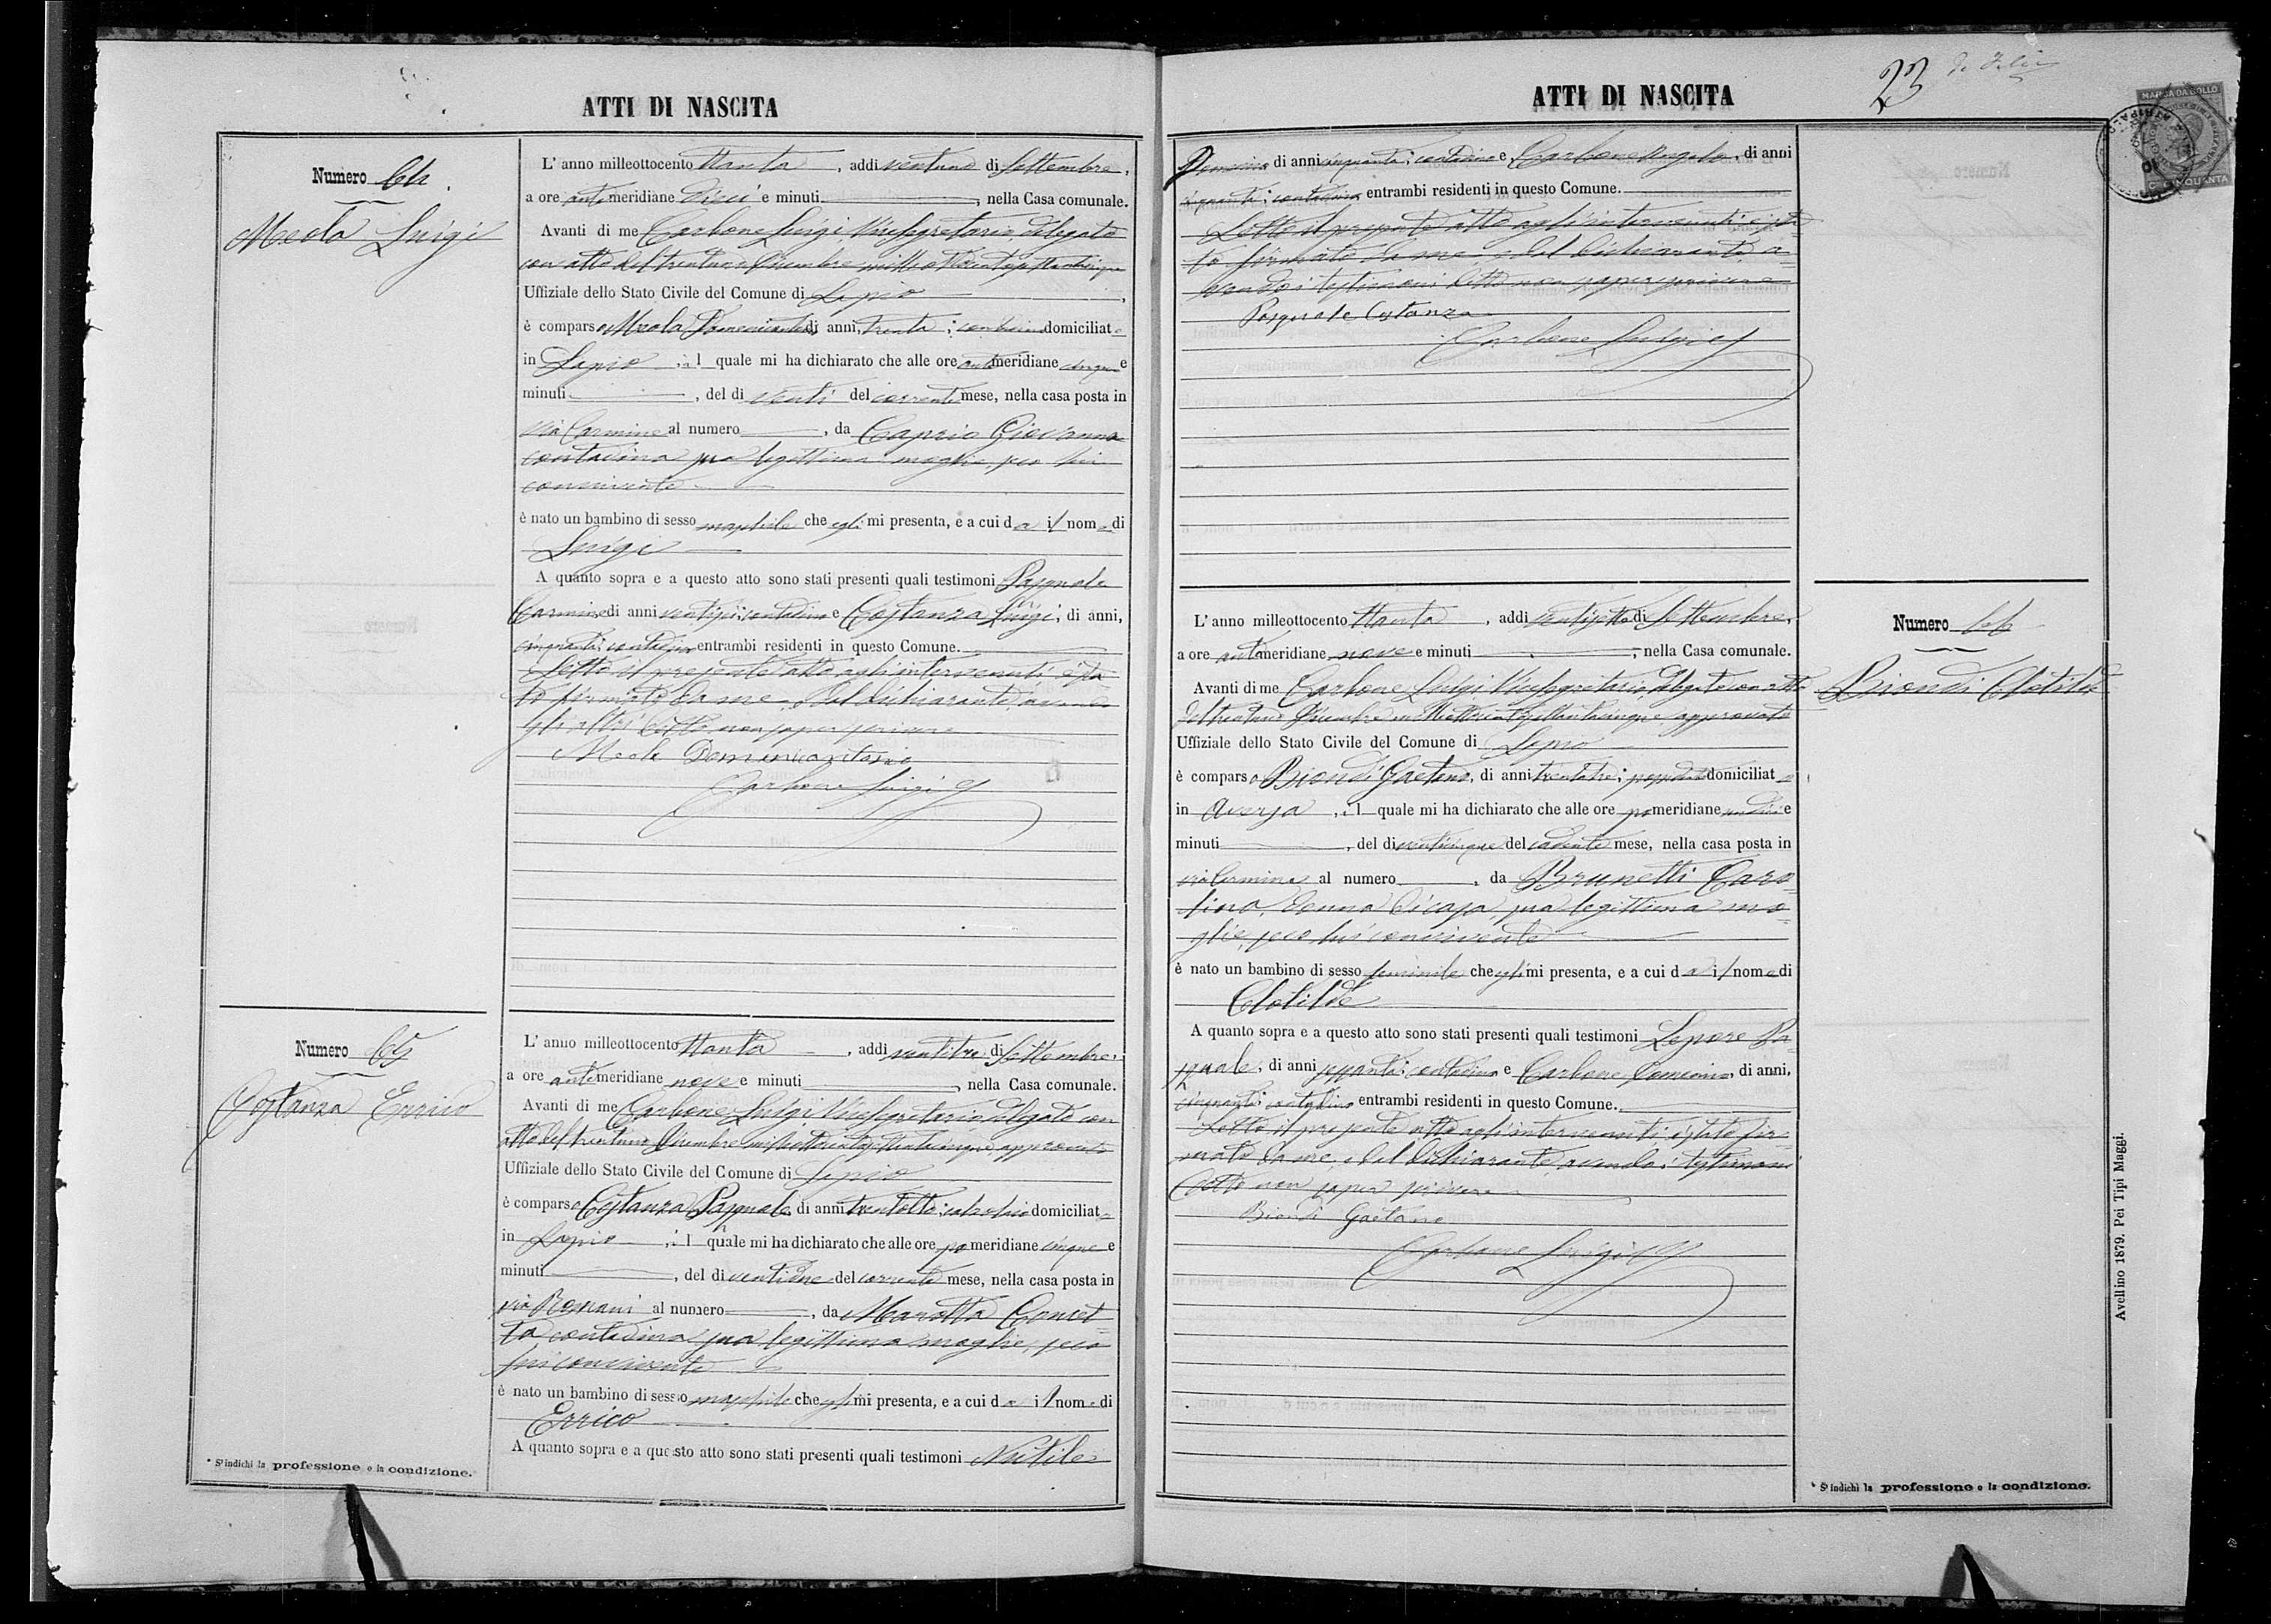 ATTI DI NASCITA
Numero 64.
Meola Luigi
L' anno milleottocento ttanta, addì ventuno di Settembre,
a ore antimeridiane dieci e minuti, nella Casa comunale.
Avanti di me Carbone Luigi Vicesegretario delegato
con atto del trentuno Dicembre milleottocentosettantacinque
Uffiziale dello Stato Civile del Comune di Lapio
è comparso Meola Domenicantonio di anni, trenta; contadino domiciliato
in Lapio, il quale mi ha dichiarato che alle ore antimeridiane cinque e
minuti, del dì venti del corrente mese, nella casa posta in
via Carmine al numero, da Caprio Giovanna
contadina sua legittima moglie, seco lui
convivente
è nato un bambino di sesso maschile che egli mi presenta, e a cui da il nome di
Luigi
A quanto sopra e a questo atto sono stati presenti quali testimoni Pasquale
Carmine di anni contadino e Costanza Luigi, di anni,
cinquanta; contadino entrambi residenti in questo Comune.
Letto il presente atto agli intervenuti, è sta
to firmato da me e dal dichiarante avendo
gli altri detto non saper scrivere
Meola Domenicantonio
Carbone Luigi
Numero 65
Costanza Errico
L' anno milleottocento ttanta, addì ventitre di Settembre,
a ore antimeridiane nove e minuti, nella Casa comunale.
Avanti di me Carbone Luigi Vicesegretario delegato con
atto del trentuno Dicembre milleottocentosettantacinque, approvato
Uffiziale dello Stato Civile del Comune di Lapio
è comparso Costanza Pasquale, di anni trentotto; domiciliato
in Lapio, il quale mi ha dichiarato che alle ore pomeridiane cinque e
minuti, del dì ventidue del corrente mese, nella casa posta in
via Romani al numero, da Marotta Concet
ta contadina sua legittima moglie, seco
lui convivente
è nato un bambino di sesso maschile che egli mi presenta, e a cui da il nome di
Errico
A quanto sopra e a questo atto sono stati presenti quali testimoni Nutile
* S' indichi la professione o la condizione.
ATTI DI NASCITA
23
MARCA DA BOLLO
di anni cinquanta; contadino e Carbone Angelo, di anni
contadino entrambi residenti in questo Comune.
Letto il presente atto agli intervenuti è sta
to firmato da me e dal dichiarante, a
vendo i testimoni detto non saper scrivere
Pasquale Costanza
Carbone Luigi
Numero 66
Biondi Clotilde
L' anno milleottocento ttanta, addì ventisette di Settembre,
a ore antimeridiane nove e minuti, nella Casa comunale.
Avanti di me Carbone Luigi Vicesegretario delegato con atto
del trentuno Dicembre milleottocentosettantacinque, approvato
Uffiziale dello Stato Civile del Comune di Lapio
è comparso Biondi Gaetano, di anni trentatre; domiciliato
in Aversa, il quale mi ha dichiarato che alle ore pomeridiane undici e
minuti, del dì venticinque del cadente mese, nella casa posta in
via Carmine al numero, da Brunetti Caro
lina, donna di casa, sua legittima mo
glie, seco lui convivente
è nato un bambino di sesso feminile che egli mi presenta, e a cui da il nome di
Clotilde
A quanto sopra e a questo atto sono stati presenti quali testimoni Lepore Pa
squale, di anni sessanta; contadino e Carbone Domenico, di anni,
cinquanta; contadino entrambi residenti in questo Comune.
Letto il presente atto agli intervenuti, è stato fir
mato da me, e dal dichiarante, avendo i testimoni
detto non saper scrivere
Biondi Gaetano
Carbone Luigi
* S' indichi la professione o la condizione.
Avellino 1879. Pei Tipi Maggi.